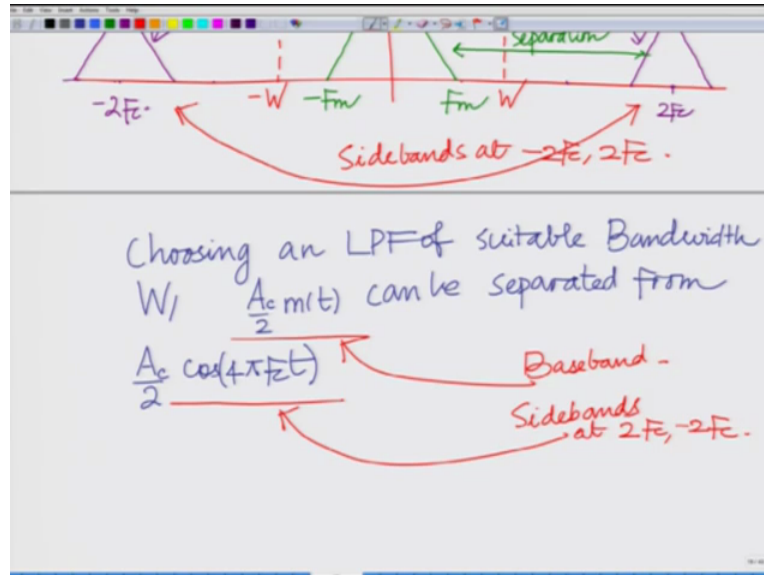 separation
-2Fc.
-W
-Fm
Fm
W
2Fc
Sidebands at -2Fc, 2Fc.
Choosing an LPF of suitable Bandwidth
W, Ac/2 m(t) can be separated from
Ac/2 cos(4πFct)
Baseband -
Sidebands
at 2Fc, -2Fc.